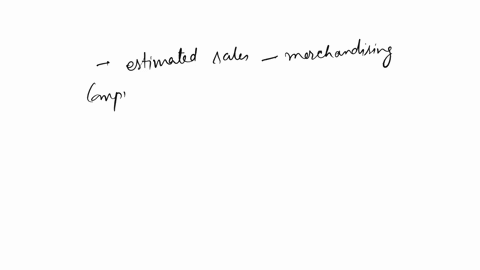 → estimated sales — merchandising
Comp